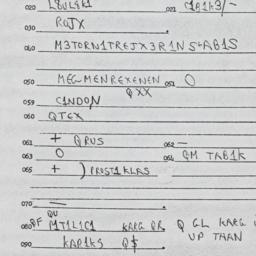 020 L8VL4K1 021 C1B1K3/-
030 RQJX
040 M3TORN1TREJX3R1N S4AB1S
050 MEGMENREXENEN 051 O
QXX
059 C1NDON
060 QTEX
061 + QRUS 062 —
063 O 064 GM TAB1K
065 + ) PROST1KLAS
070 —
QU
080 MT1L1C1 KARG QR Q GL KARG
UP THAN
090 KAP1KS Q$